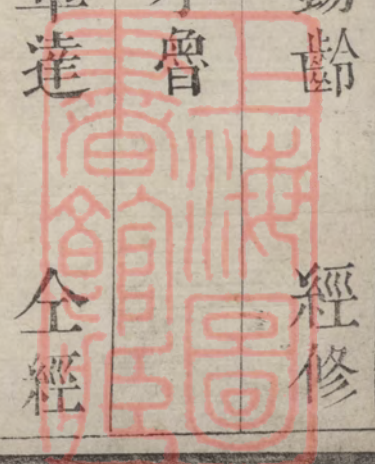 齡 經修
魯
達 仝經
上海圖
書館藏